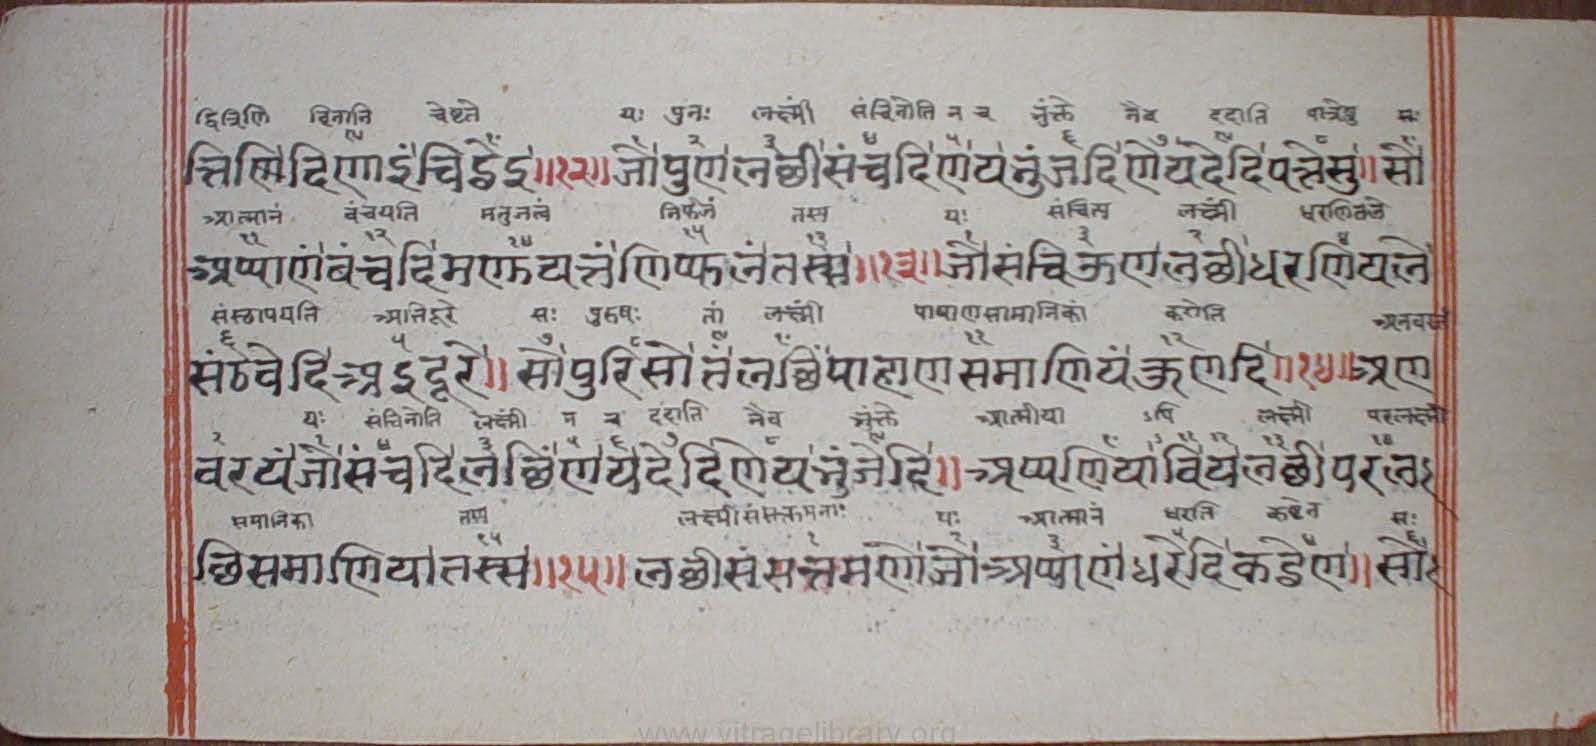 द्वित्रिणि दिनानि चेष्टते यः पुनः लक्ष्मीं संचिनोति न च भुंक्ते नैव ददाति पात्रेषु सः
त्तिण्णिदिणाइंचिट्ठेइ॥१२॥जोपुणलच्छीसंचदिणयभुंजदिणेयदेदिपत्तेसु॥सो
आत्मानं वंचयति मनुजत्वं निर्फलं तस्य यः संचित्य लक्ष्मीं धरणितले
अप्पाणंवंचदिमणुयत्तंणिप्फलंतस्स॥१३॥जोसंचिऊणलच्छीधरणियले
संस्थापयति अतिदूरे सः पुरुषः तां लक्ष्मीं पाषाणसामानिकां करोति अनवरतं
संठवेदिअइदूरे॥सोपुरिसोतंलच्छिंपाहाणसमाणियंकुणदि॥१४॥अण
यः संचिनोति लक्ष्मीं न च ददाति नैव भुंक्ते आत्मीया ऽपि लक्ष्मी परलक्ष्मी
वरयंजोसंचदिलच्छिंणयदेदिणेयभुंजेदि॥अप्पणियावियलच्छीपरल
समानिका तस्य लक्ष्मीसंसक्तमनाः यः आत्मानं धरति कष्टेन सः
च्छिसमाणियातस्स॥१५॥लच्छीसंसत्तमणोजोअप्पाणंधरेदिकडेण॥सो
www.vitragelibrary.org